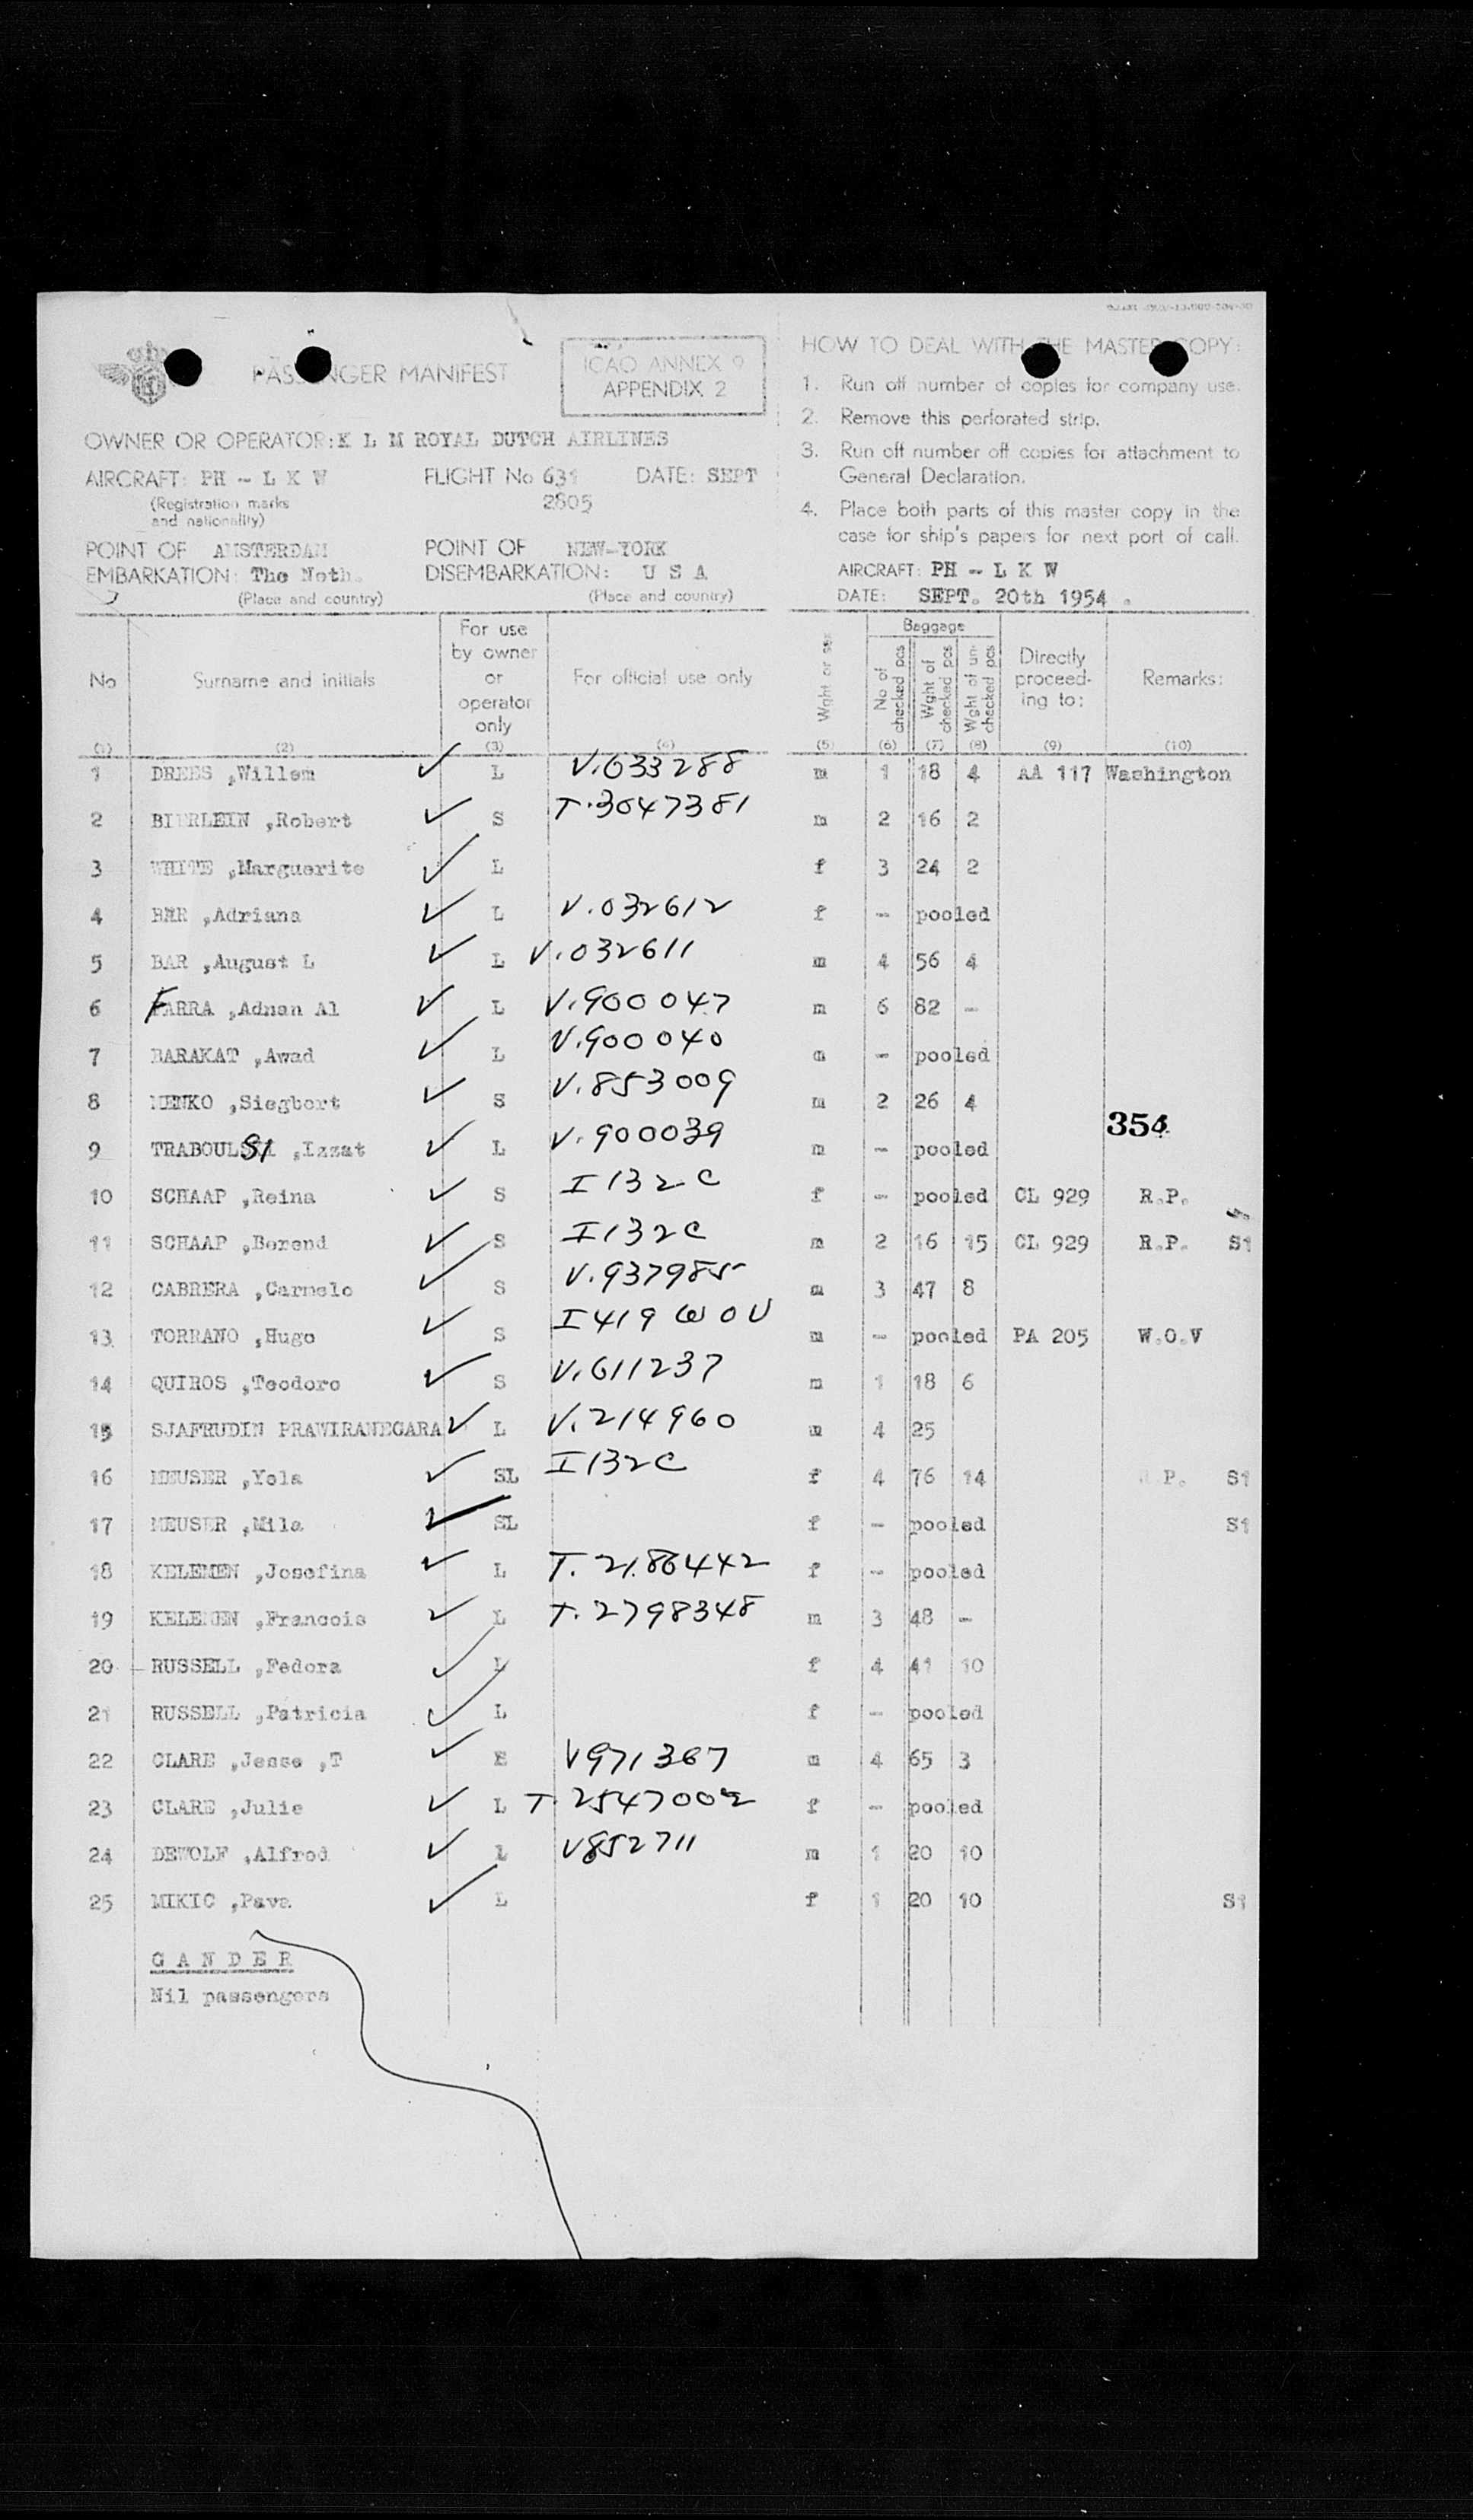 PASSENGER MANIFEST
ICAO ANNEX 9
APPENDIX 2
OWNER OR OPERATOR: K L M ROYAL DUTCH AIRLINES
AIRCRAFT: PH - L K W
FLIGHT No 631
DATE: SEPT
(Registration marks
and nationality)
2805
POINT OF AMSTERDAM
POINT OF NEW-YORK
EMBARKATION: The Neth.
DISEMBARKATION: U S A
(Place and country)
(Place and country)
HOW TO DEAL WITH THE MASTER COPY:
1. Run off number of copies for company use.
2. Remove this perforated strip.
3. Run off number off copies for attachment to
General Declaration.
4. Place both parts of this master copy in the
case for ship's papers for next port of call.
AIRCRAFT: PH - L K W
DATE: SEPT. 20th 1954.
No
Surname and initials
For use
by owner
or
operator
only
For official use only
Wght or sex
Baggage
No of checked pcs
Wght of checked pcs
Wght of un-checked pcs
Directly
proceed-
ing to:
Remarks:
(1) (2) (3) (4) (5) (6) (7) (8) (9) (10)
1 DREES ,Willem L V.633288 m 1 18 4 AA 117 Washington
2 BIERLEIN ,Robert S T.3047381 m 2 16 2
3 WHITE ,Marguerite L f 3 24 2
4 BAR ,Adriana L V.032612 f - pooled
5 BAR ,August L L V.032611 m 4 56 4
6 FARRA ,Adnan Al L V.900047 m 6 82 -
7 BARAKAT ,Awad L V.900040 m - pooled
8 MENKO ,Siegbert S V.853009 m 2 26 4
354
9 TRABOULSI ,Izzat L V.900039 m - pooled
10 SCHAAP ,Reina S I132C f - pooled CL 929 R.P.
11 SCHAAP ,Berend S I132C m 2 16 15 CL 929 R.P. S1
12 CABRERA ,Carmelo S V.937985 m 3 47 8
13 TORRANO ,Hugo S I419 WOV m - pooled PA 205 W.O.V
14 QUIROS ,Teodoro S V.611237 m 1 18 6
15 SJAFRUDIN PRAWIRANEGARA L V.214960 m 4 25
16 MEUSER ,Yola SL I132C f 4 76 14 R.P. S1
17 MEUSER ,Mila SL f - pooled S1
18 KELEMEN ,Josefina L T.2186442 f - pooled
19 KELEMEN ,Francois L T.2798348 m 3 48 -
20 RUSSELL ,Fedora L f 4 41 10
21 RUSSELL ,Patricia L f - pooled
22 CLARE ,Jesse ,T V971367 m 4 65 3
23 CLARE ,Julie L T.2547002 f - pooled
24 DEWOLF ,Alfred L V852711 m 1 20 10
25 MIKIC ,Pava L f 1 20 10 S1
G A N D E R
Nil passengers